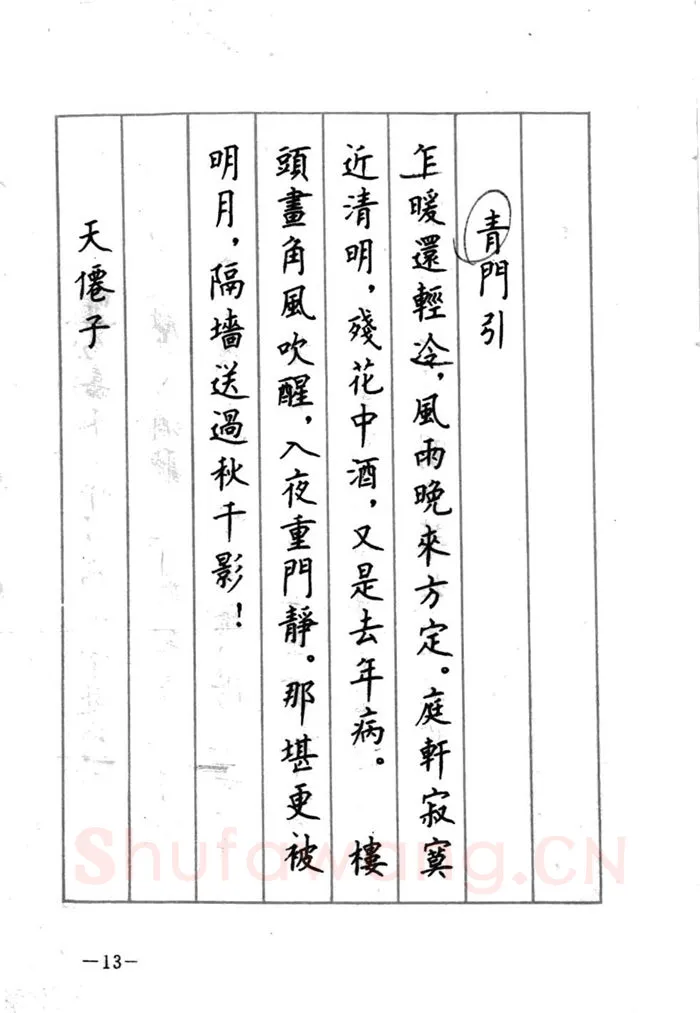 青門引
乍暖還輕冷，風雨晚來方定。庭軒寂寞
近清明，殘花中酒，又是去年病。　樓
頭畫角風吹醒，入夜重門靜。那堪更被
明月，隔墻送過秋千影！
天僊子
Shufawang.CN
—13—